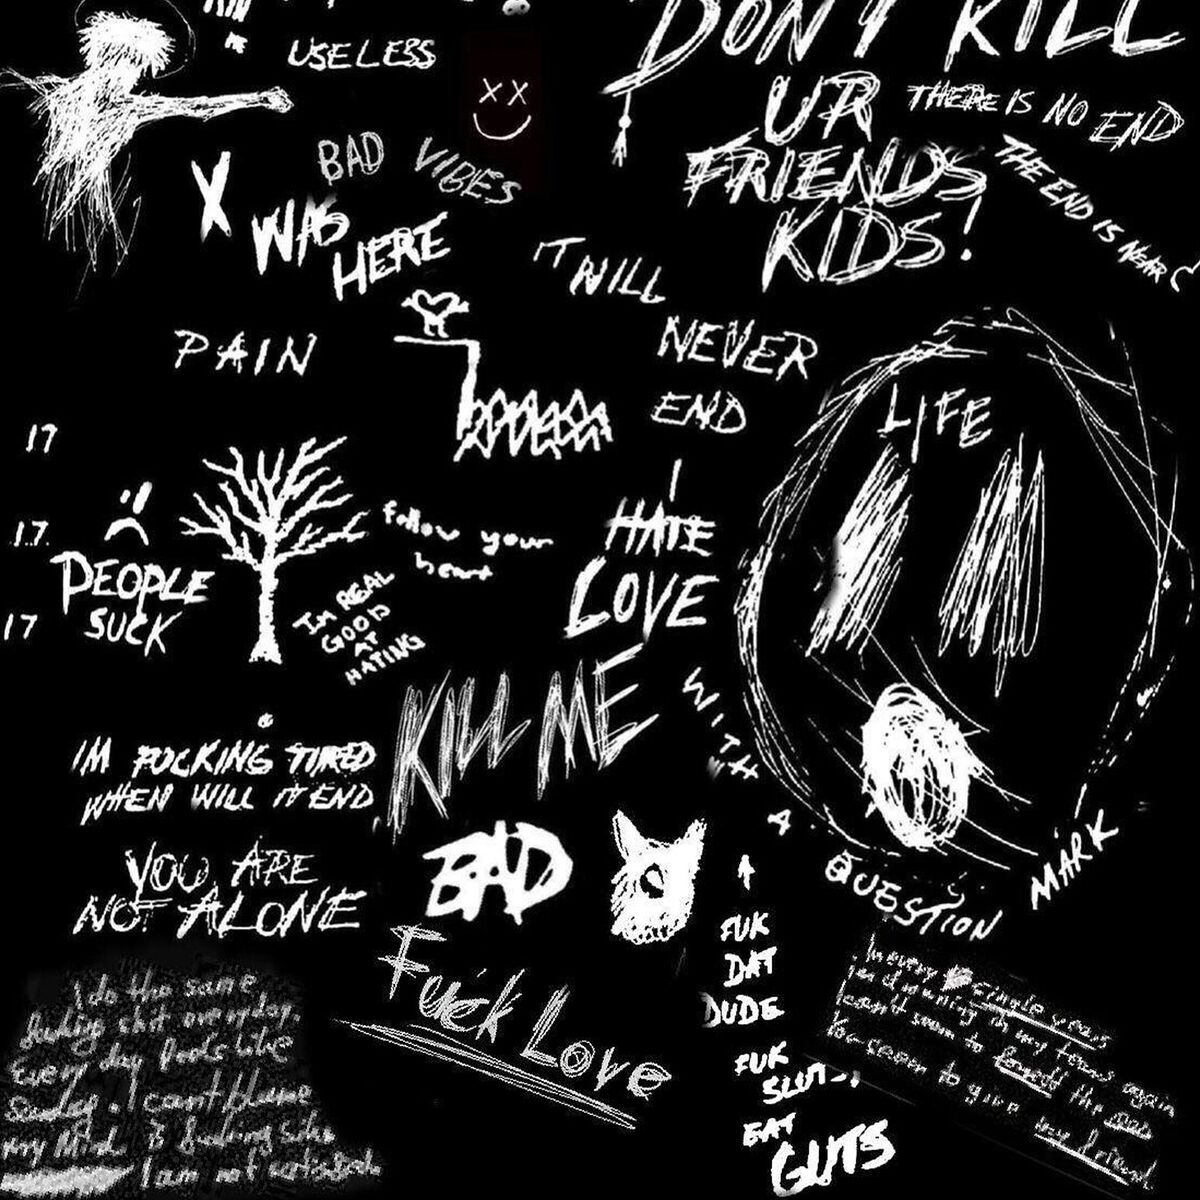 USELESS
X X
BAD VIBES
X
WAS
HERE
DON'T KILL
UR
FRIENDS
KIDS!
THERE IS NO END
THE END IS NEAR
IT WILL
NEVER
END
PAIN
17
17.
17
PEOPLE
SUCK
follow your
heart
IM REAL
GOOD
AT
HATING
I
HATE
LOVE
LIFE
WITH A QUESTION MARK
KILL ME
IM FUCKING TIRED
WHEN WILL IT END
YOU ARE
NOT ALONE
BAD
Fuck Love
FUK
DAT
DUDE
FUK
SLUTS,
EAT
GUTS
I do the same
fucking shit everyday.
Every day feels like
Sunday. I cant blame
my Mind is fucking
I am not
In every single years
I'm drowning in my tears again
I can't seem to forget the
You seem to give my friend